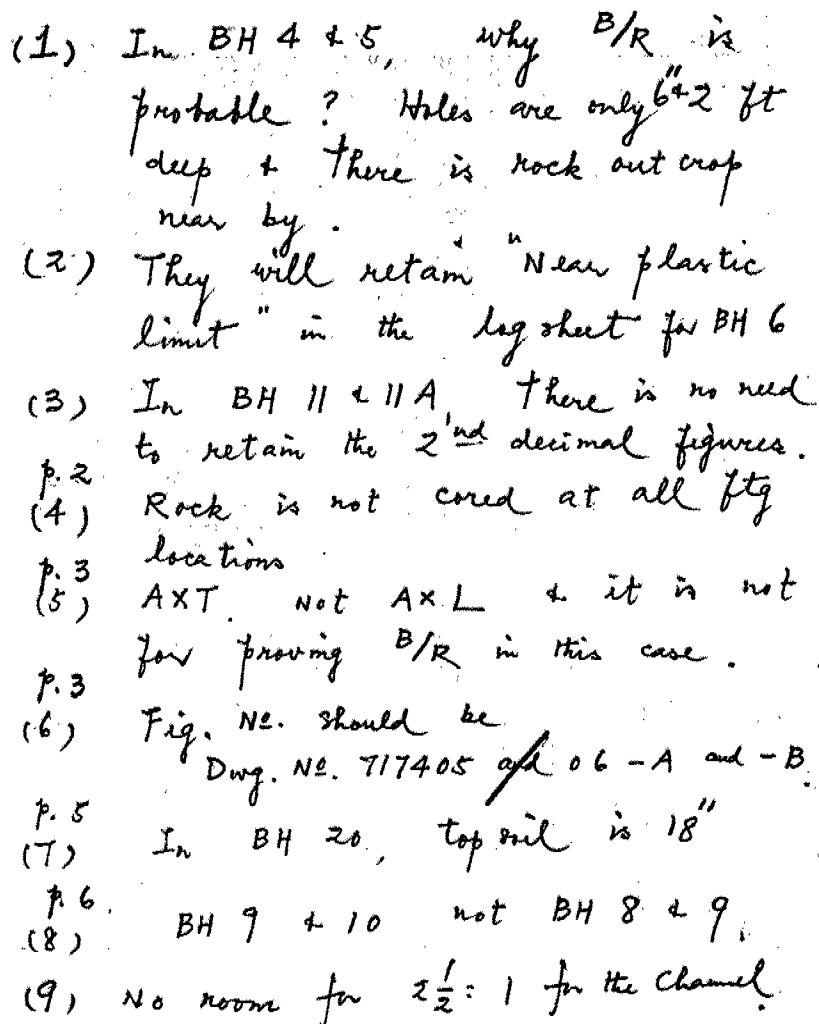 (1) In BH 4 & 5, why B/R is
probable? Holes are only 6" & 2 ft
deep & there is rock out crop
near by.
(2) They will retain "Near plastic
limit" in the log sheet for BH 6
(3) In BH 11 & 11A, there is no need
to retain the 2nd decimal figures.
p. 2
(4) Rock is not cored at all ftg
locations
p. 3
(5) AXT not AXL & it is not
for proving B/R in this case.
p. 3
(6) Fig. No. should be
Dwg. No. 717405 and 06 - A and - B.
p. 5
(7) In BH 20, top soil is 18"
p. 6
(8) BH 9 & 10 not BH 8 & 9.
(9) No room for 2 1/2 : 1 for the Channel.